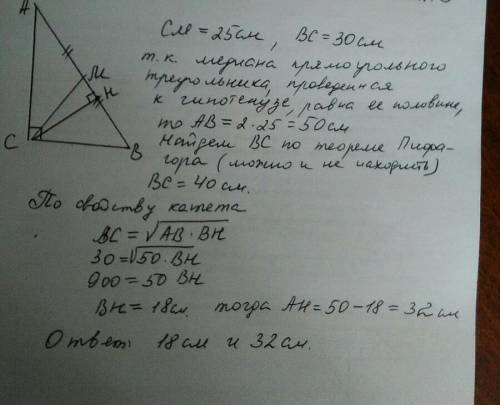 A
M
H
C
B
СМ = 25см, ВС = 30см
т.к. медиана прямоугольного
треугольника, проведенная
к гипотенузе, равна ее половине,
то АВ = 2·25 = 50см
Найдем ВС по теореме Пифа-
гора (можно и не находить)
ВС = 40 см.
По свойству катета
ВС = √АВ·ВН
30 = √50·ВН
900 = 50 ВН
ВН = 18см. тогда АН = 50 - 18 = 32 см
Ответ: 18 см и 32 см.